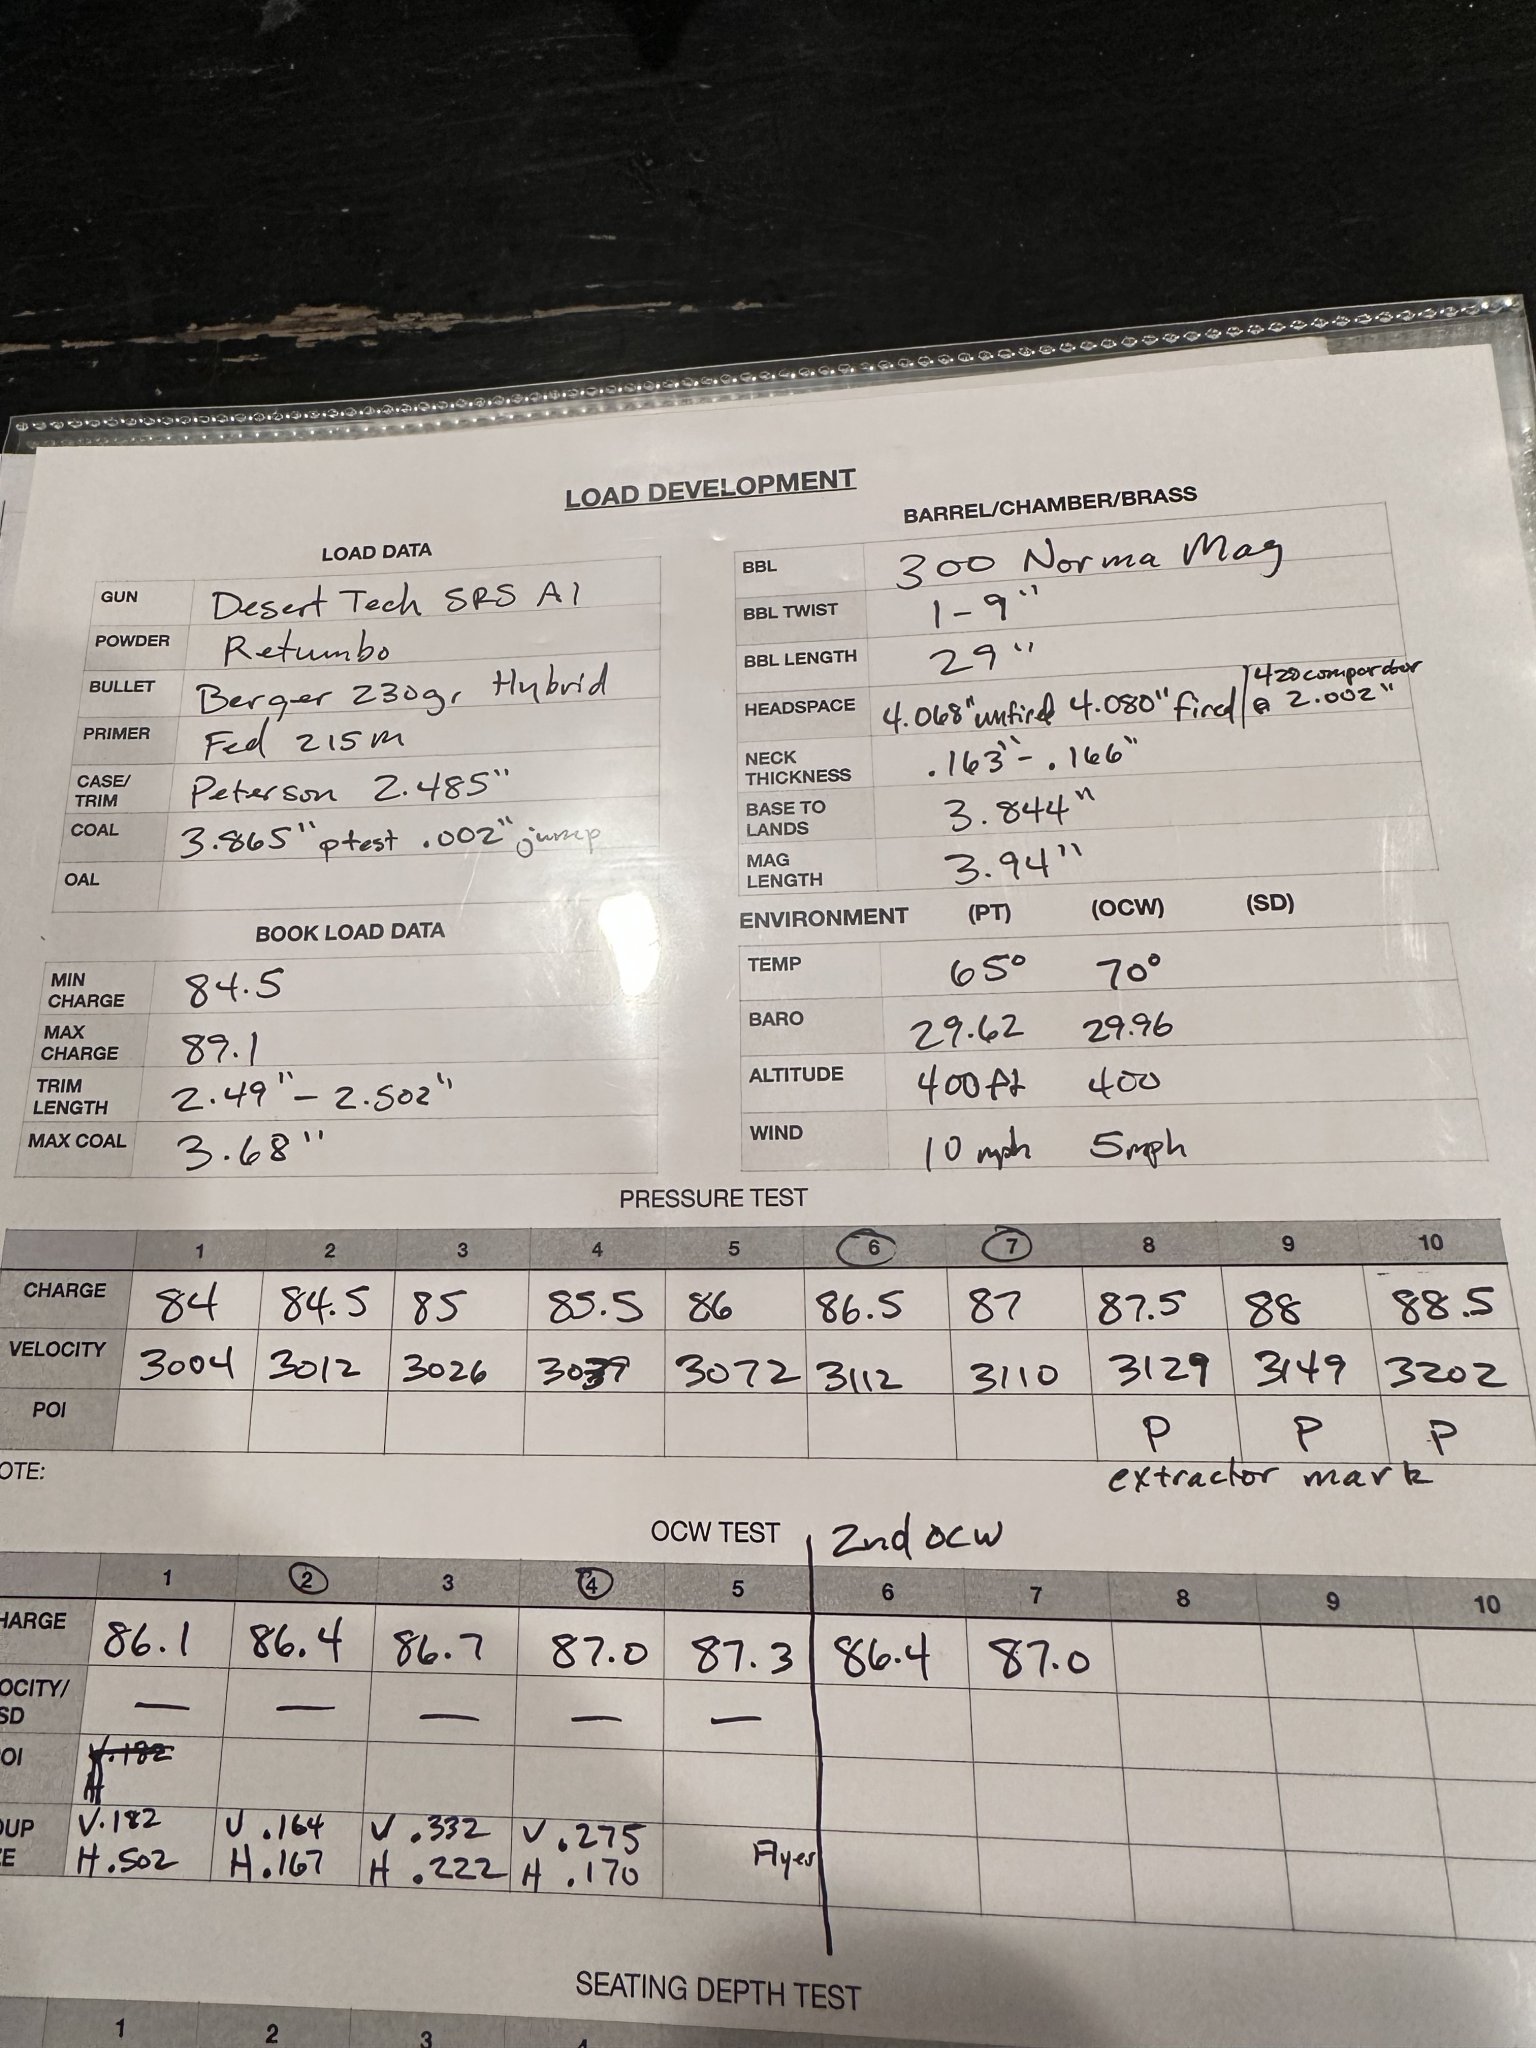 LOAD DEVELOPMENT
LOAD DATA
GUN Desert Tech SRS A1
POWDER Retumbo
BULLET Berger 230gr Hybrid
PRIMER Fed 215m
CASE/TRIM Peterson 2.485"
COAL 3.865" ptest .002" jump
OAL
BOOK LOAD DATA
MIN CHARGE 84.5
MAX CHARGE 89.1
TRIM LENGTH 2.49" - 2.502"
MAX COAL 3.68"
BARREL/CHAMBER/BRASS
BBL 300 Norma Mag
BBL TWIST 1-9"
BBL LENGTH 29"
HEADSPACE 4.068" unfired 4.080" fired 420 comparator @ 2.002"
NECK THICKNESS .163" - .166"
BASE TO LANDS 3.844"
MAG LENGTH 3.94"
ENVIRONMENT (PT) (OCW) (SD)
TEMP 65° 70°
BARO 29.62 29.96
ALTITUDE 400ft 400
WIND 10 mph 5mph
PRESSURE TEST
1 2 3 4 5 6 7 8 9 10
CHARGE 84 84.5 85 85.5 86 86.5 87 87.5 88 88.5
VELOCITY 3004 3012 3026 3039 3072 3112 3110 3129 3149 3202
POI P P P
OTE: extractor mark
OCW TEST 2nd OCW
1 2 3 4 5 6 7 8 9 10
HARGE 86.1 86.4 86.7 87.0 87.3 86.4 87.0
OCITY/SD — — — — —
OI V.182
H
OUP V.182 V .164 V .332 V .275
E H.502 H.167 H .222 H .170 Flyer
SEATING DEPTH TEST
1 2 3 4